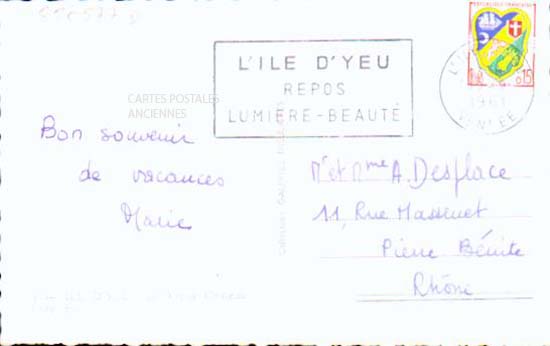 L'ILE D'YEU
REPOS
LUMIERE-BEAUTÉ
0,15
1961
VENDÉE
CARTES POSTALES
ANCIENNES
Bon souvenir
de vacances
Marie
Mr et Mme A. Desplace
11, Rue Massenet
Pierre Bénite
Rhône